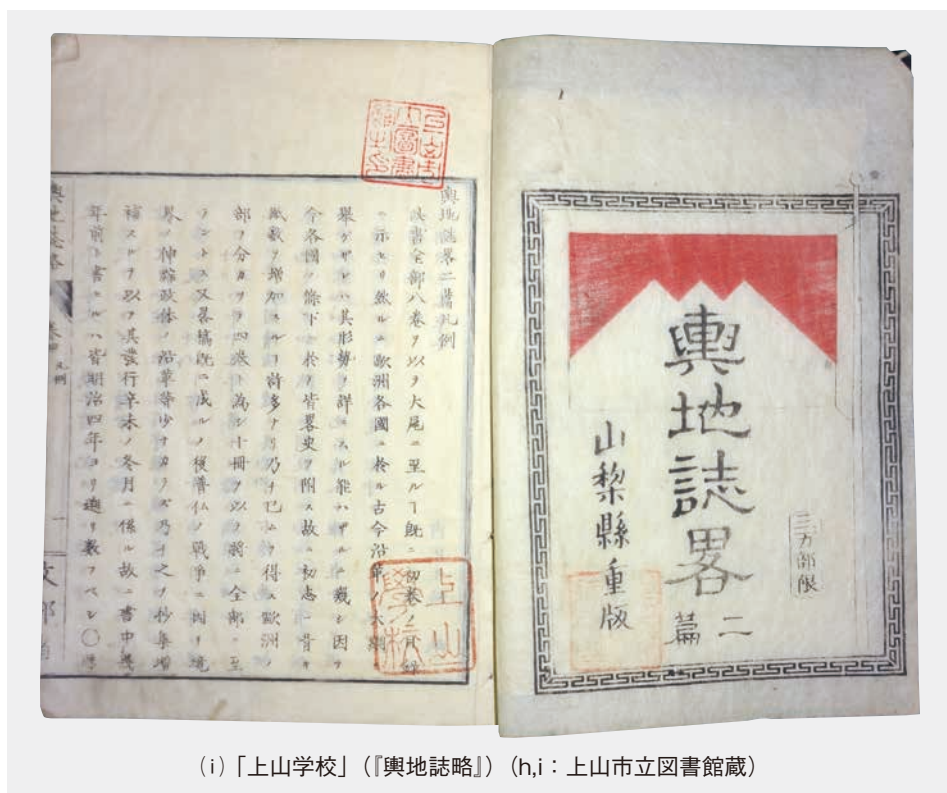 三万部限
輿地誌畧
二篇
山梨縣重版
輿地誌畧二篇凡例
該書全部八卷ヲ以テ大尾ニ至ルヿ既ニ初卷ノ目錄
ニ示セリ然ルニ歐洲各國ニ於ル古今沿革ノ大綱
擧ゲザレハ其形勢ヲ詳ニスル能ハザルニ幾シ因テ
今各國ノ條下ニ於テ皆畧史ヲ附ス故ニ初志ニ背キ
紙數ヲ増加スルヿ許多ナリ乃チ已ムヲ得ス歐洲ノ
部ヲ分カチテ四卷ト為シ十冊ヲ以テ將ニ全部ニ至
ラントス又畧稿既ニ成ルノ後普仏ノ戰爭ニ因リ境
界ノ伸縮政体ノ沿革等少ナカラズ乃チ之ヲ抄集增
補スルヲ以テ其發行辛未ノ冬月ニ係ル故ニ書中幾
年前ト書スルハ皆明治四年ヨリ遡リ數フベシ〇
上山學校
凡例
一
(i)「上山学校」(『輿地誌略』)(h,i：上山市立図書館蔵)